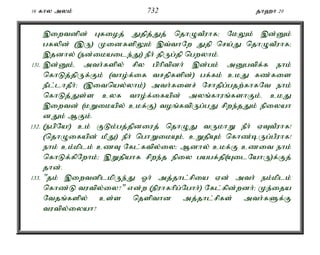 16 கால அலம் 732 தாஹா 20
இறைவனின் புகழைத் துதித்துத் தொழுவீராக; மேலும் இன்னும்
பகலின் (இரு) முனைகளிலும் இவ்வாறே துதி செய்து தொழுவீராக;
இதனால் (நன்மையடைந்து) நீர் திருப்தி பெறலாம்.
131. இன்னும், அவர்களில் சில பிரிவினர் இன்பம் அனுபவிக்க நாம்
கொடுத்திருக்கும் (வாழ்க்கை வசதிகளின்) பக்கம் உமது கண்களை
நீட்டாதீர்; (இவையெல்லாம்) அவர்களைச் சோதிப்பதற்காகவே நாம்
கொடுத்துள்ள உலக வாழ்க்கையின் அலங்காரங்களாகும். உமது
இறைவன் (மறுமையில் உமக்கு) வழங்கவிருப்பது சிறந்ததும் நிலையா
னதும் ஆகும்.
132. (நபியே!) உம் குடும்பத்தினரைத் தொழுது வருமாறு நீர் ஏவுவீராக!
(தொழுகையின் மீது) நீர் பொறுமையும், உறுதியும் கொண்டிருப்பீராக!
நாம் உம்மிடம் உணவு கேட்கவில்லை; ஆனால் உமக்கு உணவை நாம்
கொடுக்கிறோம்; இறுதியாக சிறந்த நிலை பயபக்தி(யுடையோரு)க்குத்
தான்.
133. "தம் இறைவனிடமிருந்து ஓர் அத்தாட்சியை ஏன் அவர் நம்மிடம்
கொண்டு வரவில்லை?" என்று (நிராகரிப்போர்) கேட்கின்றனர்; முந்தைய
வேதங்களில் உள்ள தெளிவான அத்தாட்சிகள் அவர்களுக்கு
வரவில்லையா?